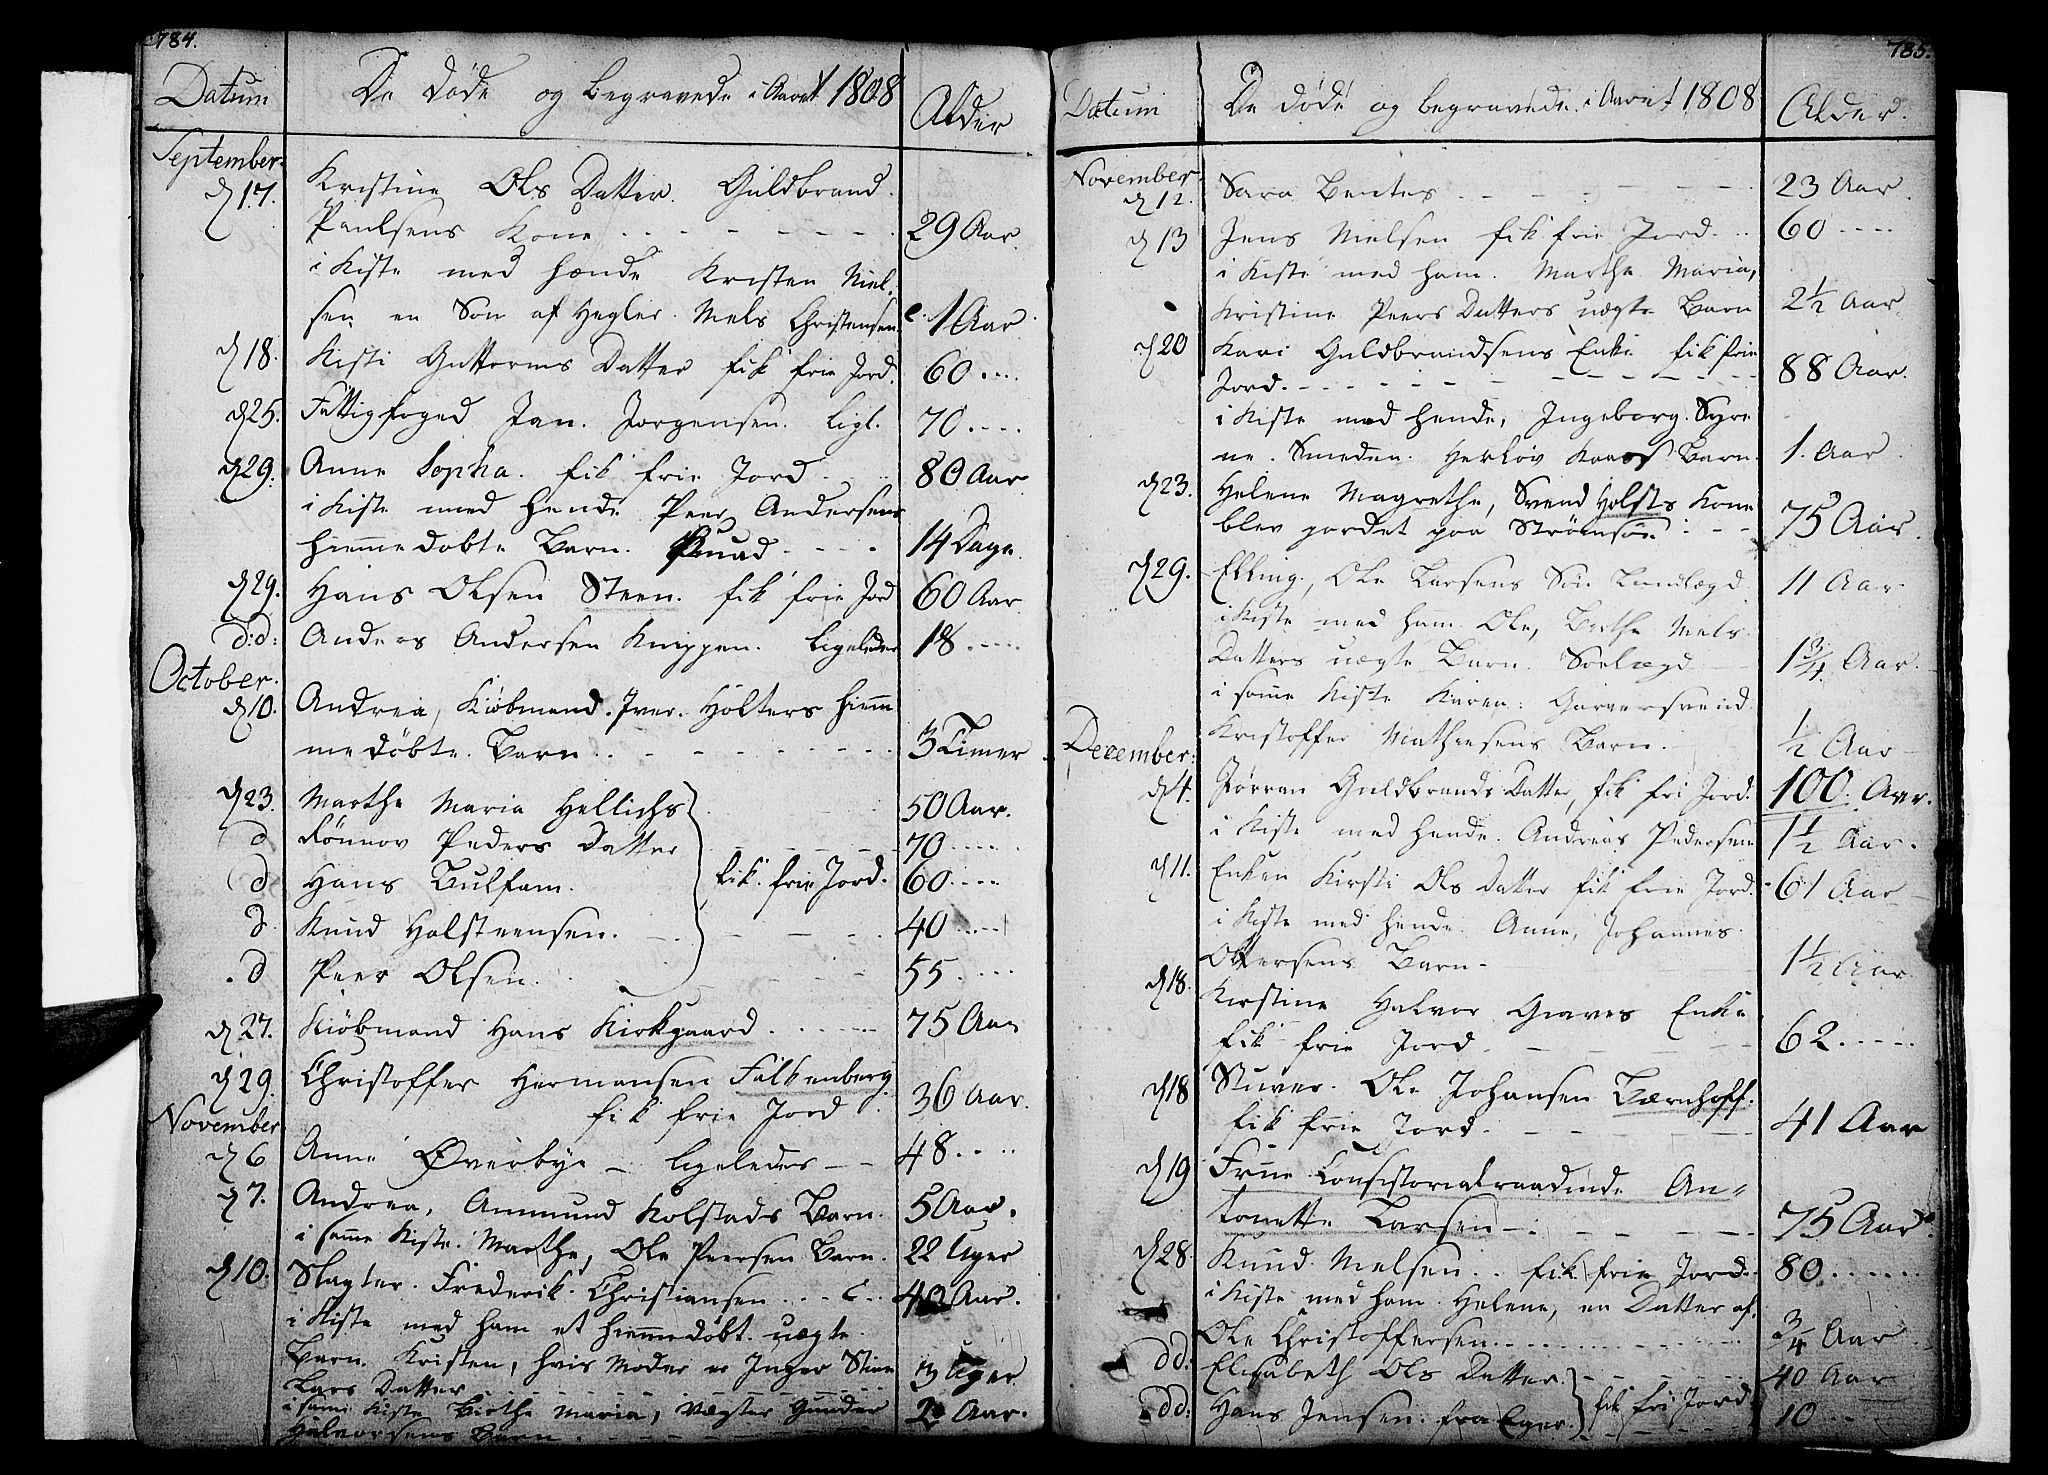 784.
Datum De döde og begravede i Aaret 1808 Alder
September
d 17. Kristine Ols Datter. Guldbrand
Paulsens Kone 29 Aar.
i Kiste med hende Kristen Niel-
sen en Son af Hegler. Niels Christensen 1 Aar
d 18. Kisti Guttorms Datter fik frie Jord. 60
d 25. Fattigfoged Jan. Jorgensen. ligl. 70
d 29. Anne Sopha. fik frie Jord 80 Aar
i Kiste med hende Peer Andersens
hiemmedobte Barn. 14 Dage.
d 29. Hans Olsen Steen. fik frie Jord 60 Aar
d:d: Anders Andersen Knippen. ligeledes 18
October.
d 10. Andrea, Kiöbmand. Iver. Holters hiem
medöbte. Barn 3 Timer
d 23. Marthe Maria Hellichs 50 Aar.
d Rönnov Peders Datter 70
d Hans Bulfam. fik. frie Jord. 60
d. Knud Holsteensen. 40
d Peer Olsen. 55
d 27. Kiöbmand Hans Kirkgaard 75 Aar
d 29. Christoffer Hermansen Falkenberg.
fik frie Jord 36 Aar.
November
d 6 Anne Øverbye – ligeledes 48
d 7. Andrea, Ammund Kolstads Barn. 5 Aar.
i samme Kiste. Marthe, Ole Peersen Barn. 22 Uger
d 10. Slagter. Frederik. Christiansen 40 Aar.
i Kiste med ham et hiemmedöbt. uægte
Barn. Kristen, hvis Moder er Inger Stine
Lars Datter 3 Uger
i samme Kiste Birthe Maria, Vægter Gunder
Halvorsens Barn 2 Aar.
785.
Datum De döde og begravede i Aaret 1808 Alder.
November.
d 12. Sara Bentes 23 Aar
d 13 Jens Nielsen fik frie Jord 60
i Kiste med ham. Marthe Maria,
Kristine Peers Datters uægte Barn 2½ Aar
d 20 Kari Guldbrandsens Enke fik frie
Jord. 88 Aar.
i Kiste med hende, Ingeborg. Syre
ne. Smeden. Herlov Barn. 1. Aar
d 23. Helene Magrethe, Svend Holsts Kone
blev jordet paa Strömsöe 75 Aar.
d 29. Elling, Ole Larsens Sön Lundlægd 11 Aar
i Kiste med ham Ole, Berthe Niels
Datters uægte Barn. 1¾ Aar.
i samme Kiste Karen. Garversvend
Kristoffer Mathiesens Barn. ½ Aar
December.
d 4. Jörran Guldbrands Datter, fik fri Jord. 100. Aar.
i Kiste med hende. Andreas Pedersen 1½ Aar.
d 11. Enken Kirsti Ols Datter fik frie Jord. 61 Aar
i Kiste med hende. Anne, Johannes.
Ottersens Barn 1½ Aar.
d 18. Kirstine Halvor Graves Enke
fik frie Jord 62
d 18 Stuver. Ole Johansen Bærnhoff.
fik frie Jord. 41 Aar
d 19 Frue Consistorialraadinde An=
tonette Larsen 75 Aar
d 28 Knud Nielsen fik frie Jord. 80
i Kiste med ham. Helene, en Datter af
Ole Christoffersen ¾ Aar
dd: Elisabeth Ols Datter. 40 Aar
dd: Hans Jensen. fra Eger. fik fri Jord 10